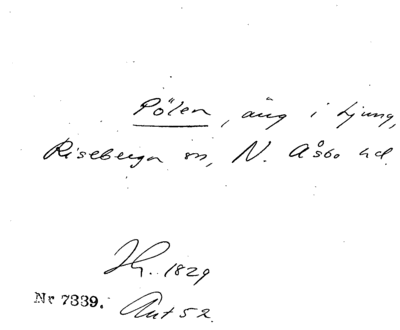 Pölen, äng i Ljung,
Riseberga sn, N. Åsbo hd.
Jh. 1829
Nr 7339. Akt 52.